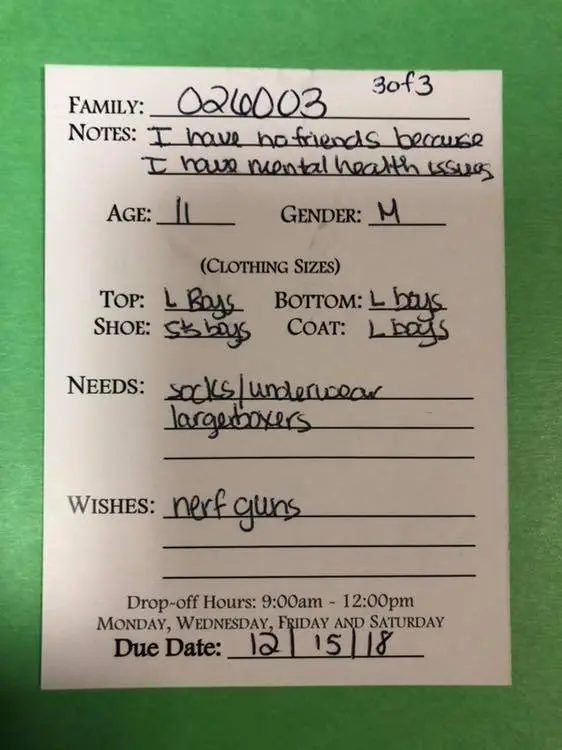 3 of 3
FAMILY: 026003
NOTES: I have no friends because
I have mental health issues
AGE: 11 GENDER: M
(CLOTHING SIZES)
TOP: L Boys BOTTOM: L boys
SHOE: boys COAT: L boys
NEEDS: socks/underwear
large boxers
WISHES: nerf guns
Drop-off Hours: 9:00am - 12:00pm
MONDAY, WEDNESDAY, FRIDAY AND SATURDAY
Due Date: 12/15/18